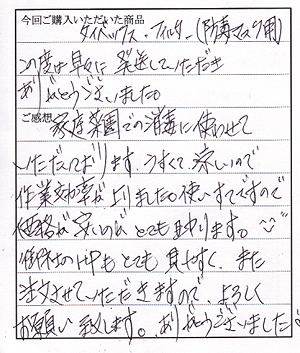 今回ご購入いただいた商品
タイベックス・フィルター(防毒マスク用)
この度は早々に発送していただき
ありがとうございました。
ご感想
家庭菜園での消毒に使わせて
いただいております。うすくて、涼しいので
作業効率が上りました。使いすてですので
価格が安いのがとても助かります。
御社のHPもとても見やすく、また
注文させていただきますので、よろしく
お願い致します。ありがとうございました